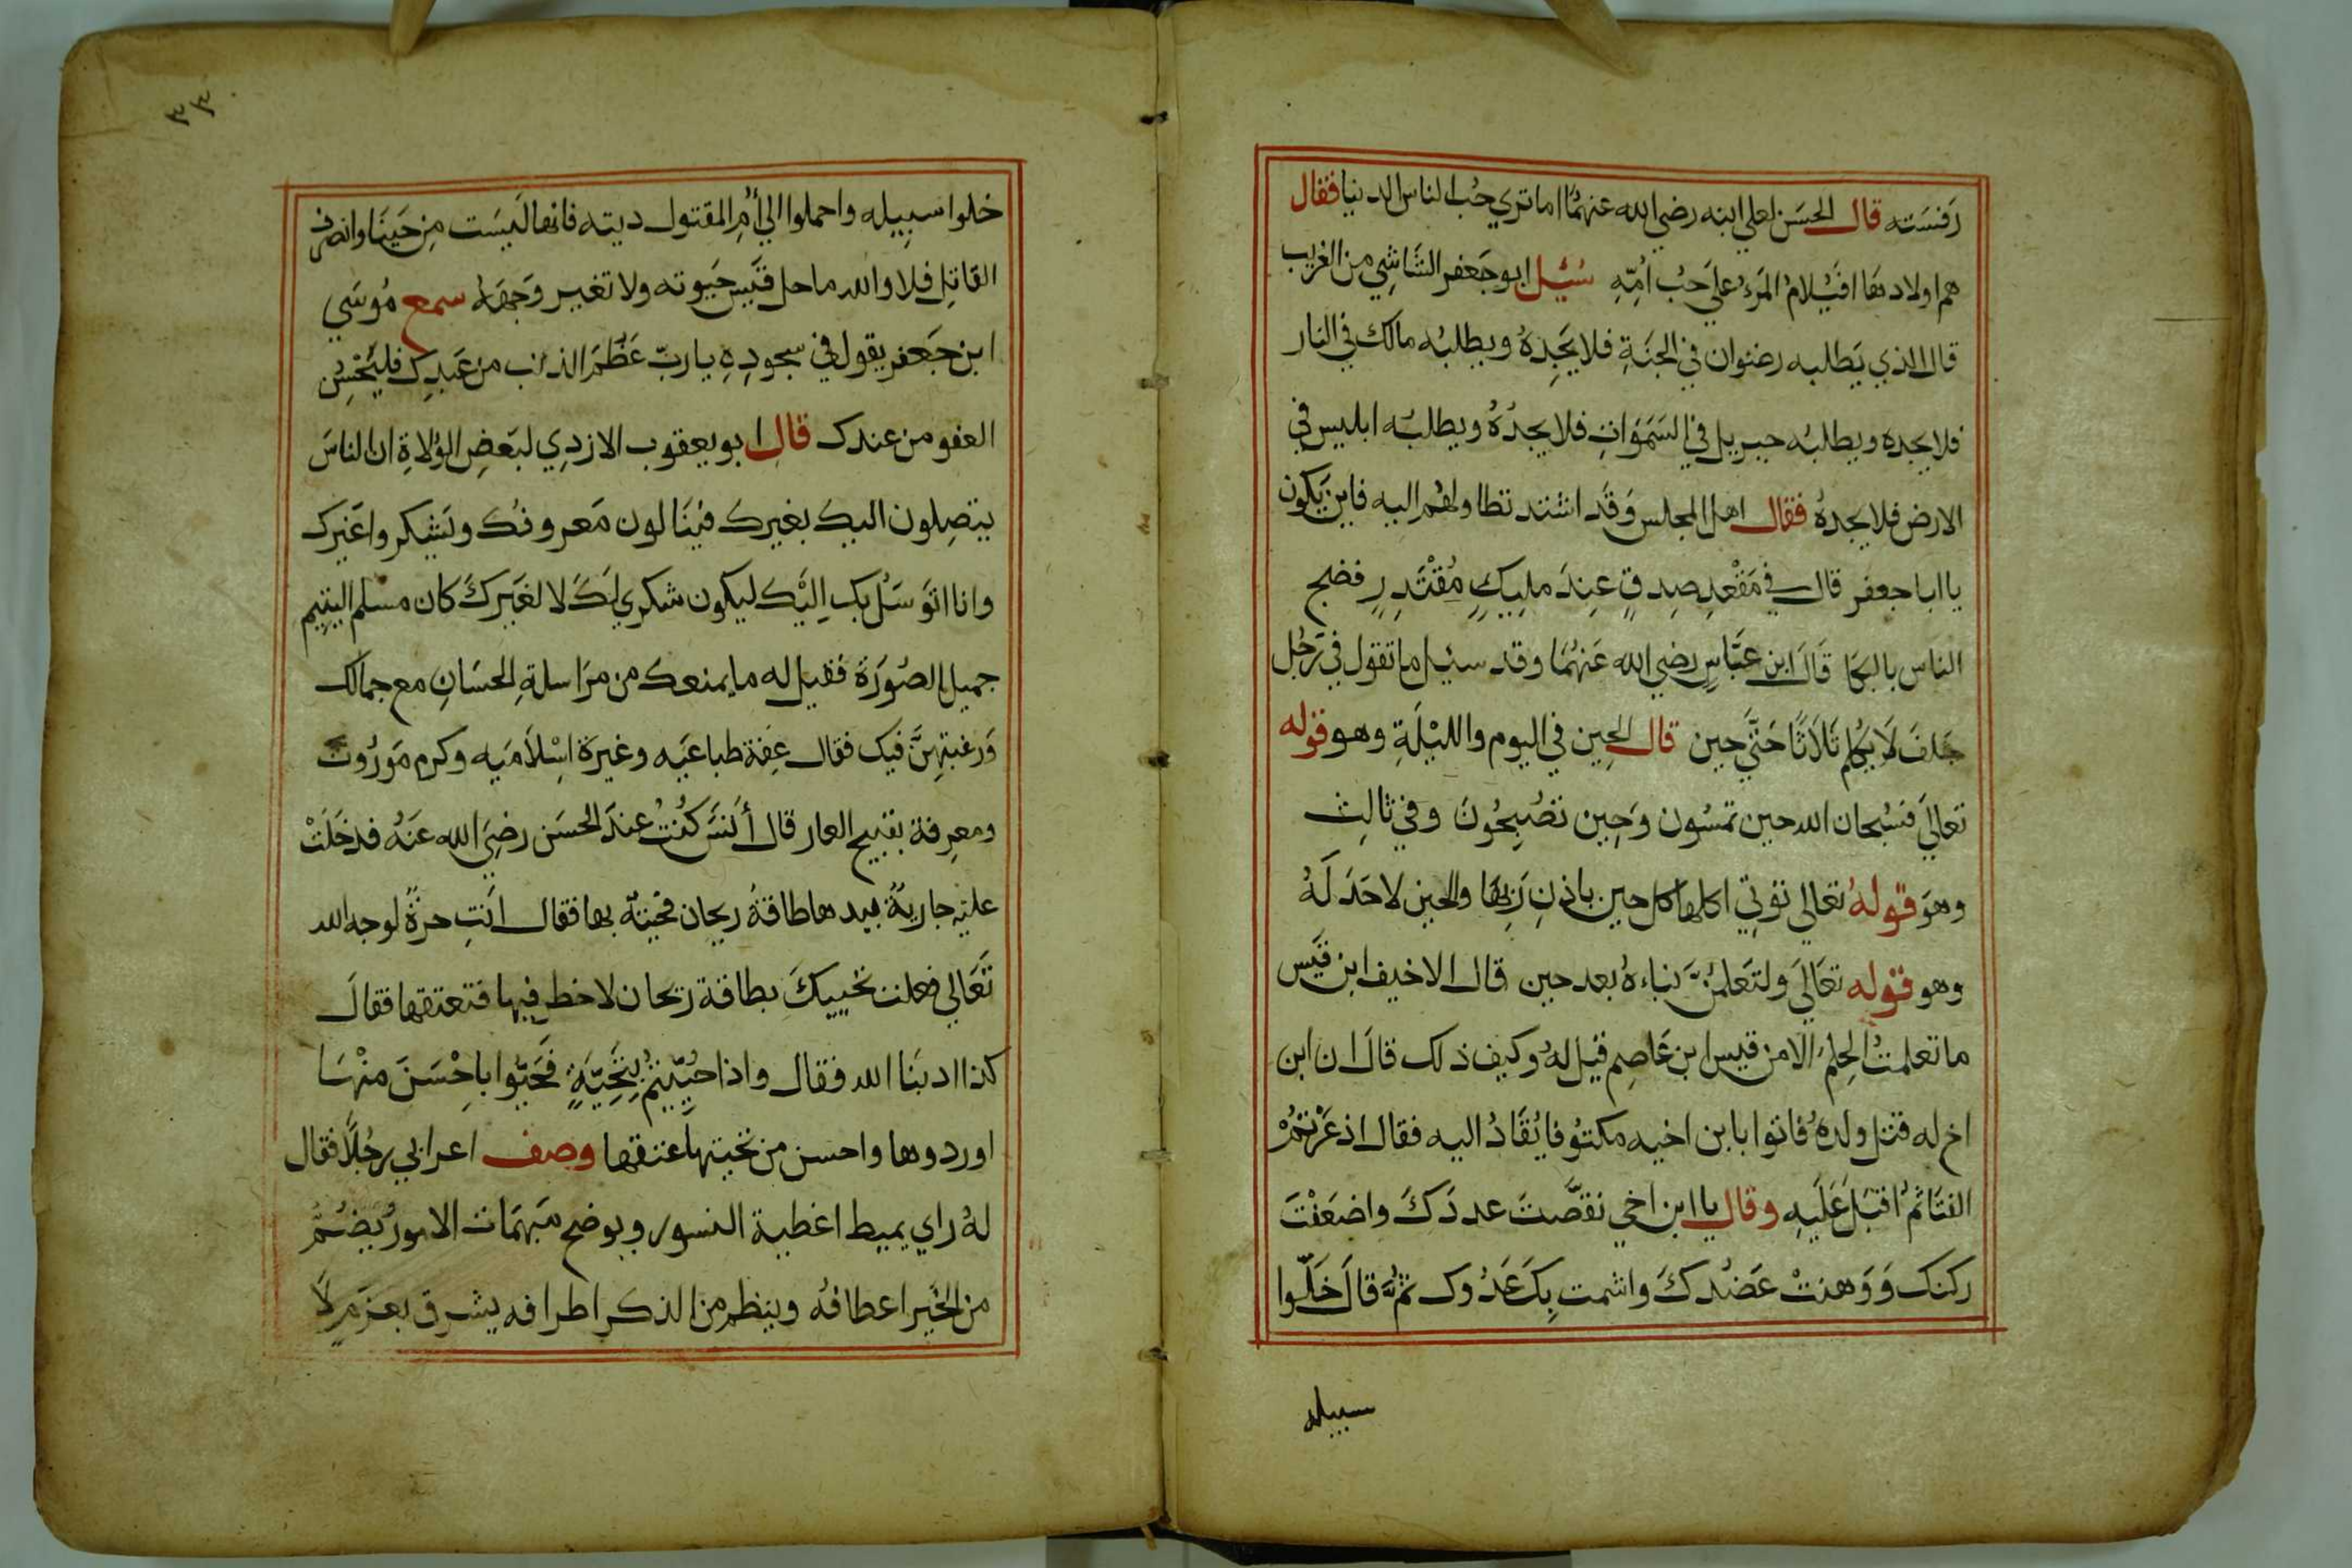 رَفسَته قال الحسَن لعلي ابنه رضي الله عنهمَا اما تري حُب الناس الدنيا فقال
هم اولادهَا افيُلامُ المَرءُ علي حَبُ امِّهِ سُئِل ابو جَعفر الشَاشِي من الغريب
قال الذي يَطلبه رضوان في الجنَةِ فلا يَجِدهُ ويطلبُه مالك في النار
فلا يجده ويطلبُه جبريل في السَمَوَاتِ فلا يجدُهُ ويطلبُه ابليس في
الارض فلا يجدهُ فقال اهل المجلس وَقَد اشتد تطاولهُم اليه فاين يَكون
يا ابا جعفر قال في مَقْعدِ صِدقٍ عِندَ مليكٍ مُقْتَدِرٍ فضج
الناس بالبكا قَالَ ابن عبَّاسٍ رضي الله عَنهُمَا وقد سئِل ما تقول في رَجُل
حَلفَ لَا يُكلم ثلاثًا حَتَّي حين قال الحِين في اليوم والليْلَةِ وهو قوله
تعالَي فسُبحان الله حين تمسُون وَحِين تصُبِحُونَ وفي ثالِث
وهوَ قولهُ تعالي تؤتِي اكلها كل حين باذنِ رَبِهَا والحين لا حَدَ لَهُ
وهو قوله تعَالَي ولتَعلمُنَّ نباءهُ بعد حين قال الاخيف ابن قيَس
ما تعلمتُ الحِلمَ الا من قيس ابن عَاصِم قيل لهُ وكيف ذلك قال ان ابن
اخ له قتل ولدهُ فاتوا بابن اخيه مكتوُفا يُقَادُ اليه فقال اذعَرْتمُ
الفتَا ثمُ اقبَلَ عَلَيهِ وقال يا ابن اخي نقصَّتَ عددَكَ واضعَفْتَ
ركنك وَوَهنتْ عَضُدكَ واشمت بِكَ عَدُوك ثمُ قالَ خَلّوا
سبيله
٣٣
خلوا سَبِيله واحملوا الي أمُ المقتول ديته فانها لَيسَت مِن حَيِنَا وانصرف
القاتِل فلا والله ما حل قيَس حبَوته ولا تغيير وَجههُ سمع مُوسَي
ابن جَعفر يقول في سجودِهِ يا ربّ عَظُمَ الذنب من عَبدِك فليَحْسن
العفو من عندك قال ابو يعقوب الازدِي لبَعضِ الوُلاةِ ان الناسَ
يتصِلون اليك بغيرك فيَنَالون مَعروفكُ ويَشِكروا غَيرك
وانا اتوَسَلُ بك اِليْك ليكون شكري لَكَ لا لغيَركَ كان مسلم اليتيم
جميل الصُورَة فقيل له ما يمنعك من مرَاسلةِ الحسَانِ مع جمالك
وَرغبتِهِنَّ فيك فقال عِفة طباعيَه وغيرَة اسِْلَاميَه وكرم مَورُوث
ومعرِفة بقبيح العار قال أنسَ كُنتُ عندَ الحسَن رضِيَ الله عَنهُ فدخَلَتْ
عليَهِ جاريةُ بيدها طاقةُ ريحان فحيتهُ بها فقال انَتِ حرةُ لوجه الله
تَعَالي فعلت تحييكَ بطاقة ريحان لا خطر فيها فتعتقها فقالَ
كذا ادبنَا الله فقال واذا حُيّيتمُ بِتَحِيَّةٍ فَحَيّوا باحْسَنَ منْهَا
اوردوها واحسن من تحيتها عتقها وصف اعرابي رجُلاً فقال
لهُ راي يميط اغطية النسور ويوضح مَبهمَات الامورُ يضُمُ
من الخيَر اعطافهُ وينظم من الذكر اطرافه يشرق بعزَمِ لا